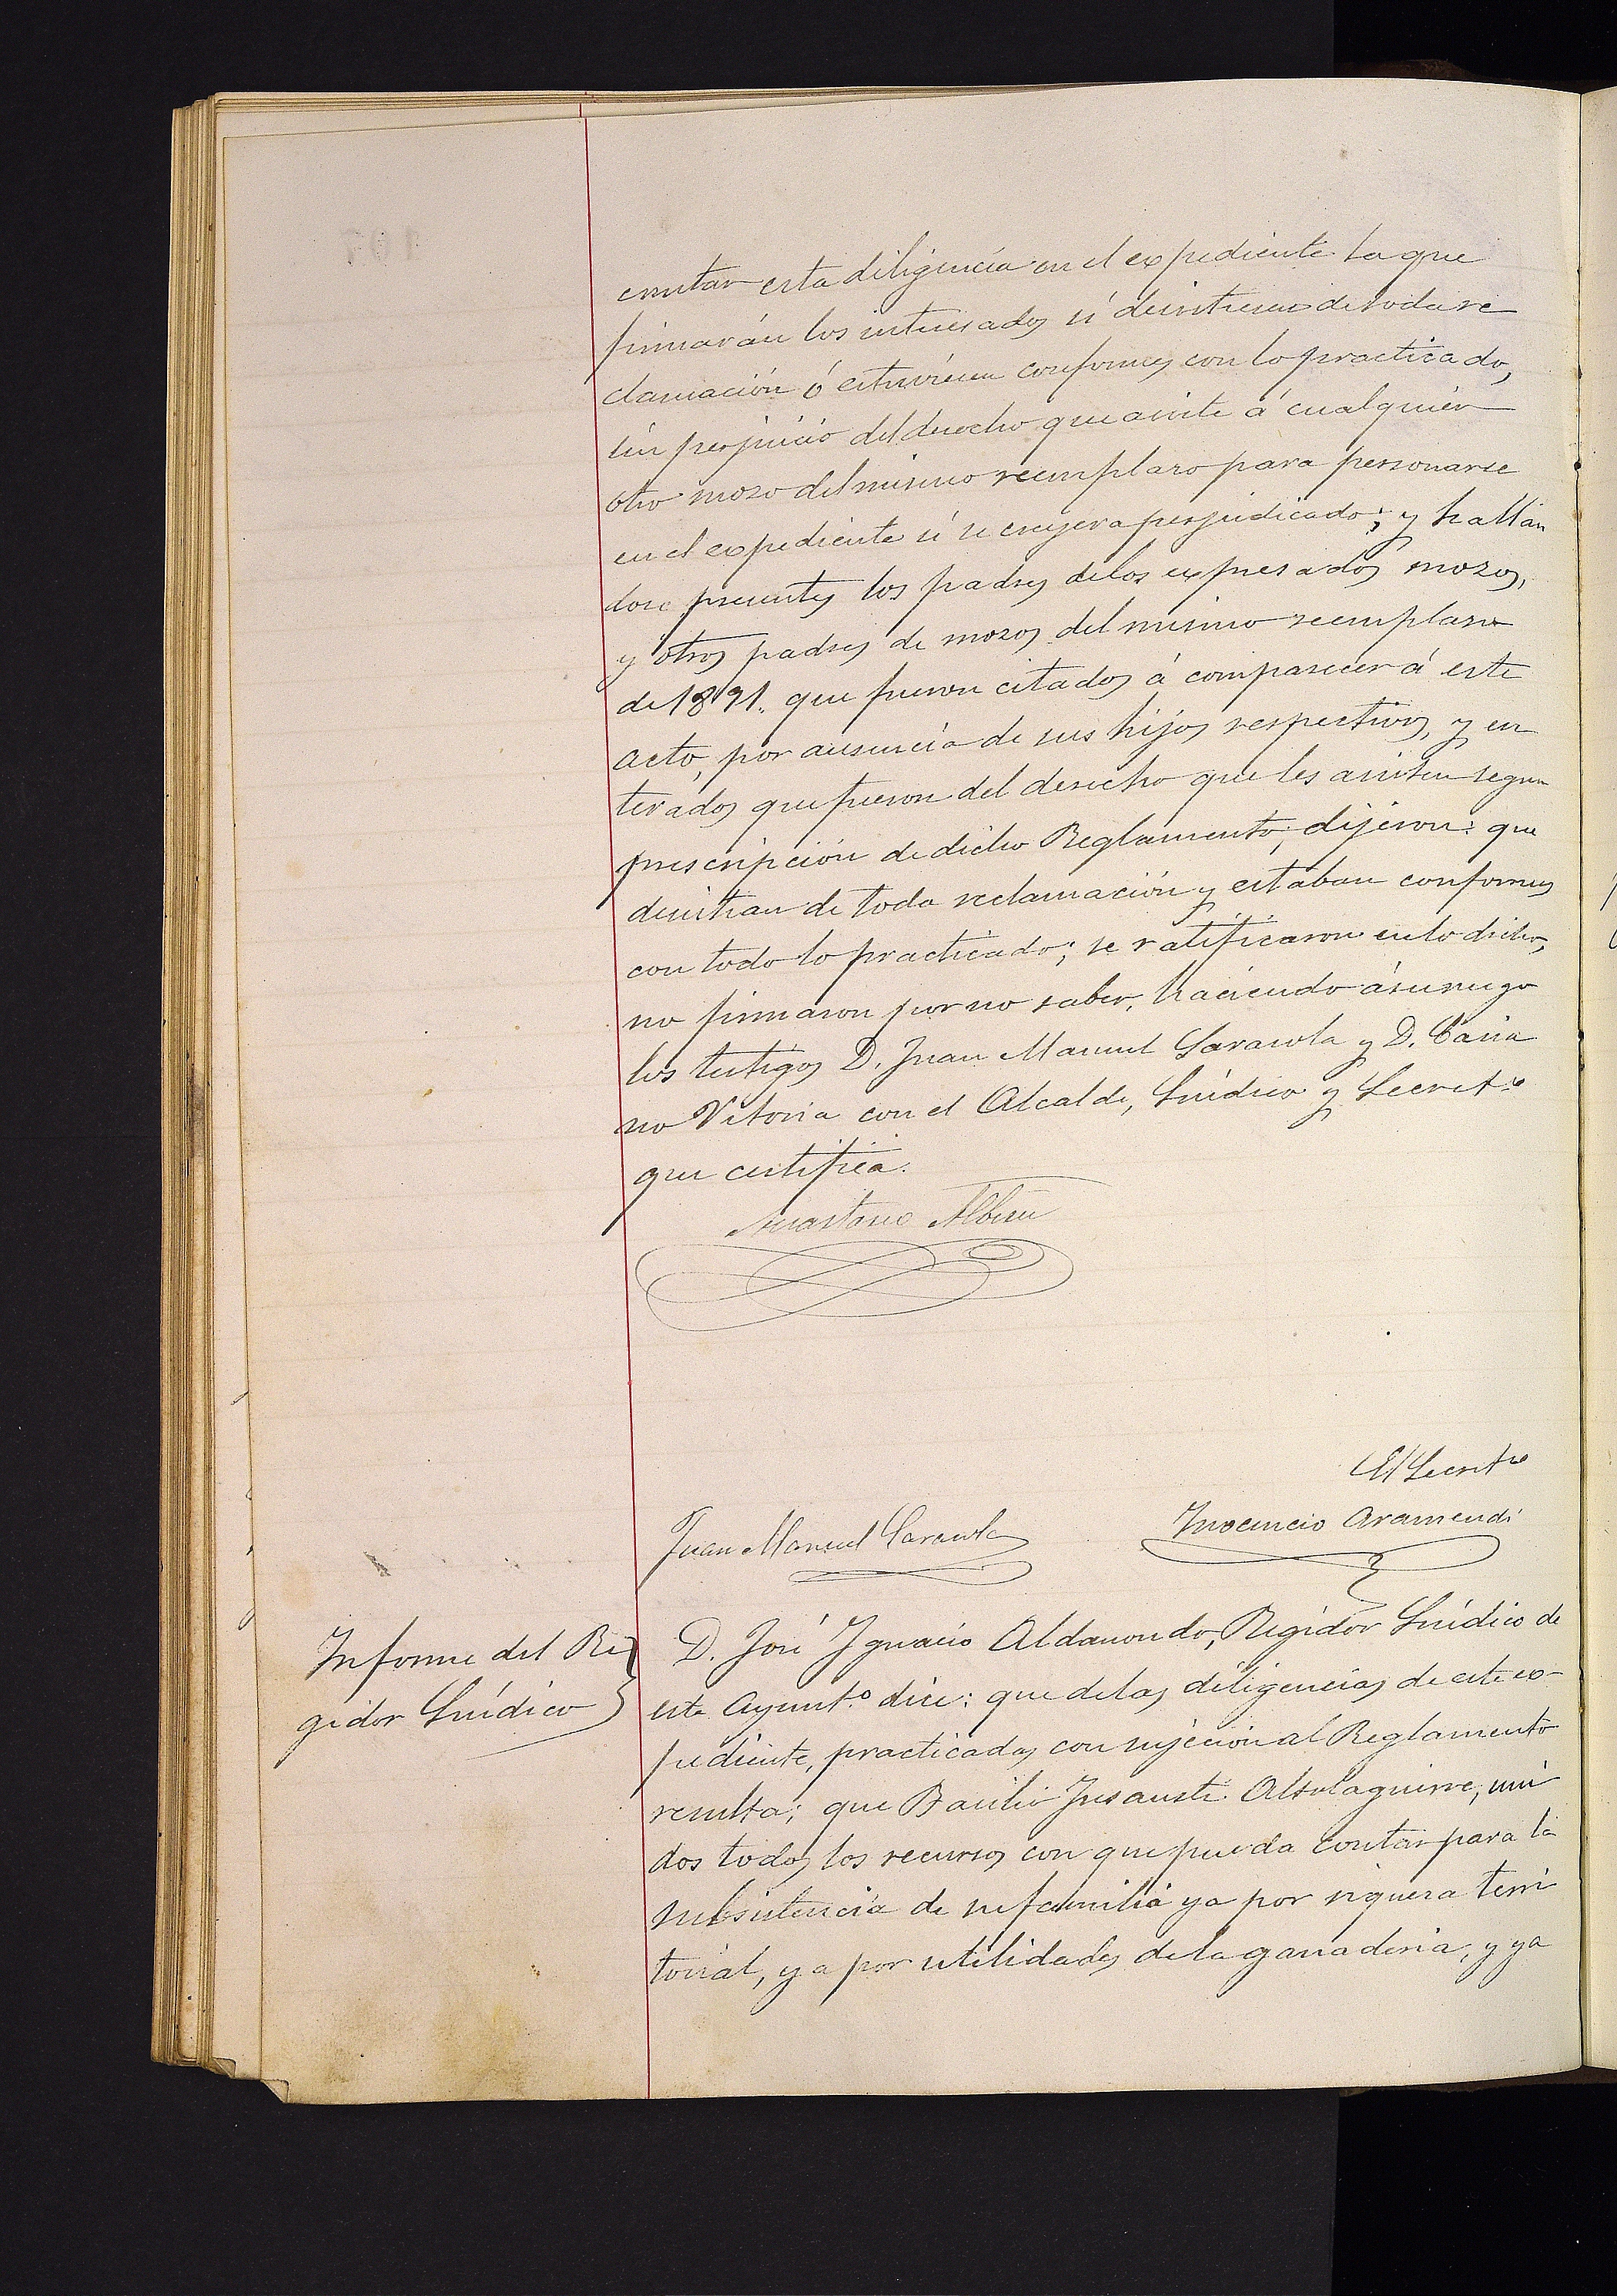 constar esta diligencia en el expediente la que
firmarán los interesados si desistiesen de toda re
clamación ó estuviesen conformes con lo practicado,
sin perjuicio del derecho que asiste á cualquier
otro mozo del mismo reemplazo para personarse
en el expediente si se creyera perjudicado; y hallán
dose presentes los padres de los expresados mozos,
y otros padres de mozos del mismo reemplazo
de 1891. que fueron citados á comparecer á este
acto, por ausencia de sus hijos respectivos, y en
terados que fueron del derecho que les asisten segun
prescripción de dicho Reglamento, dijeron: que
desistian de toda reclamación y estaban conformes
con todo lo practicado; se ratificaron en lo dicho,
no firmaron por no saber, haciendo á su ruego
los testigos D. Juan Manuel Sarasola y D. Casia
no Vitoria con el Alcalde, Síndico y Secretº
que certifica.
Anastasio Albisu
El Secretº
Juan Manuel Sarasola
Inocencio Aramendi
Informe del Re
gidor Síndico
D. José Ignacio Aldanondo, Regidor Síndico de
este Ayuntº dice: que de las diligencias de este ex-
pediente, practicadas con sujeción al Reglamento
resulta; que Basilio Insausti Altolaguirre, uni
dos todos los recursos con que pueda contar para la
subsistencia de su familia ya por riqueza terri
torial, ya por utilidades de la ganaderia, y ya